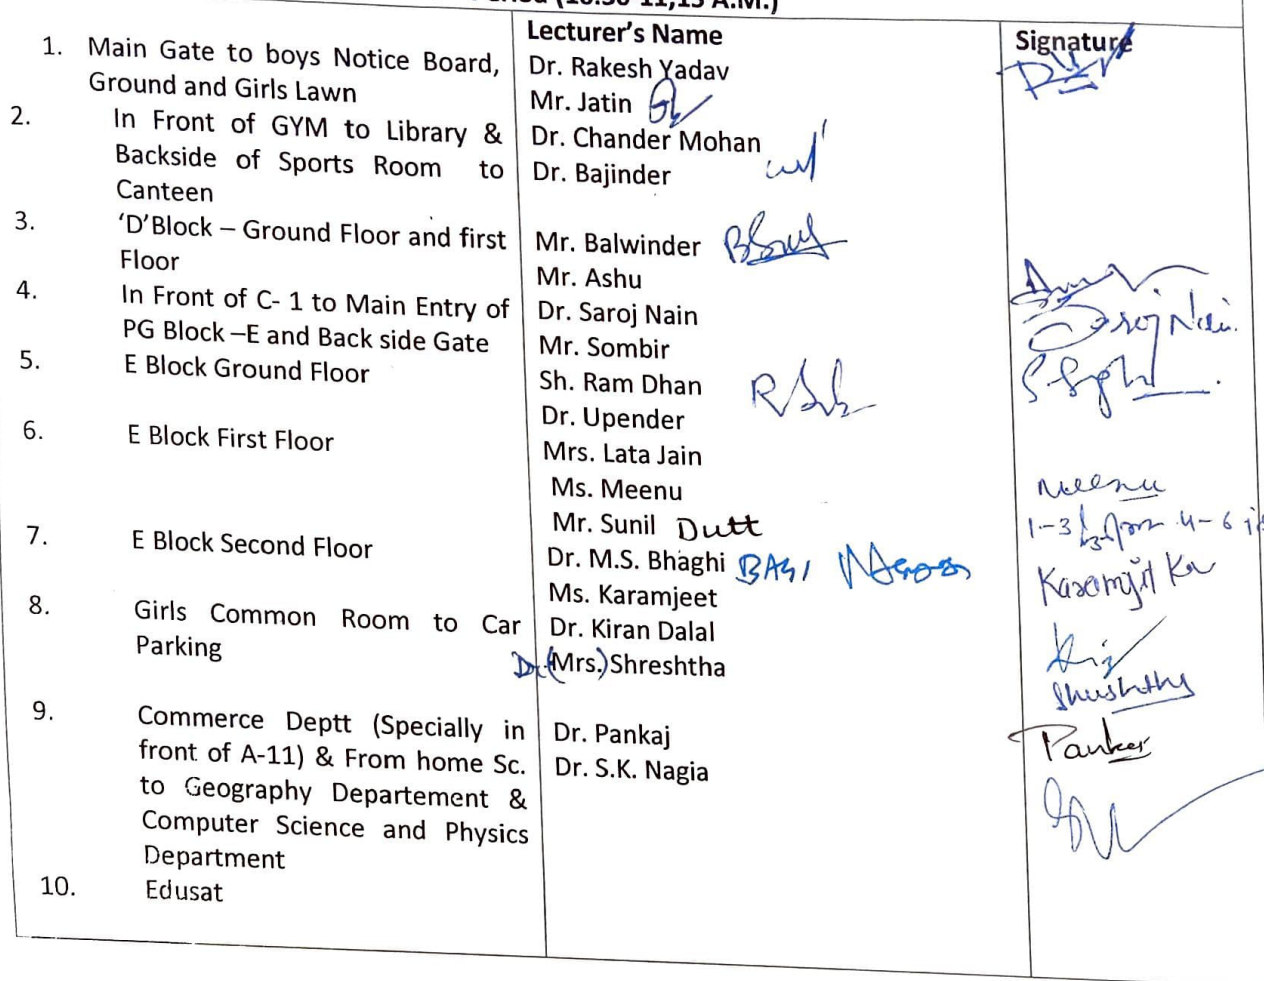 (10.30-11,15 A.M.)
Lecturer's Name
Signature
1. Main Gate to boys Notice Board,
Ground and Girls Lawn
Dr. Rakesh Yadav
Mr. Jatin
2. In Front of GYM to Library &
Backside of Sports Room to
Canteen
Dr. Chander Mohan
Dr. Bajinder
3. 'D'Block – Ground Floor and first
Floor
Mr. Balwinder
Mr. Ashu
4. In Front of C- 1 to Main Entry of
PG Block –E and Back side Gate
Dr. Saroj Nain
Saroj Nain
Mr. Sombir
5. E Block Ground Floor
Sh. Ram Dhan
Dr. Upender
6. E Block First Floor
Mrs. Lata Jain
Ms. Meenu
Meenu
Mr. Sunil Dutt
1-3 4-6
7. E Block Second Floor
Dr. M.S. Bhaghi BAGI
Ms. Karamjeet
Karamjit Kr
8. Girls Common Room to Car
Parking
Dr. Kiran Dalal
Dr. (Mrs.) Shreshtha
Shreshtha
9. Commerce Deptt (Specially in
front of A-11) & From home Sc.
to Geography Departement &
Computer Science and Physics
Department
Dr. Pankaj
Pankaj
Dr. S.K. Nagia
10. Edusat